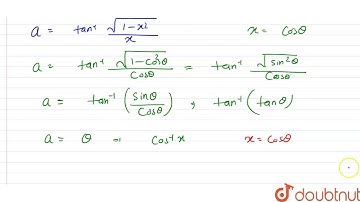 a = tan⁻¹ √(1-x²)/x x = cosθ
a = tan⁻¹ √(1-cos²θ)/cosθ = tan⁻¹ √(sin²θ)/cosθ
a = tan⁻¹ (sinθ/cosθ) , tan⁻¹ (tanθ)
a = θ = cos⁻¹ x x = cosθ
doubtnut